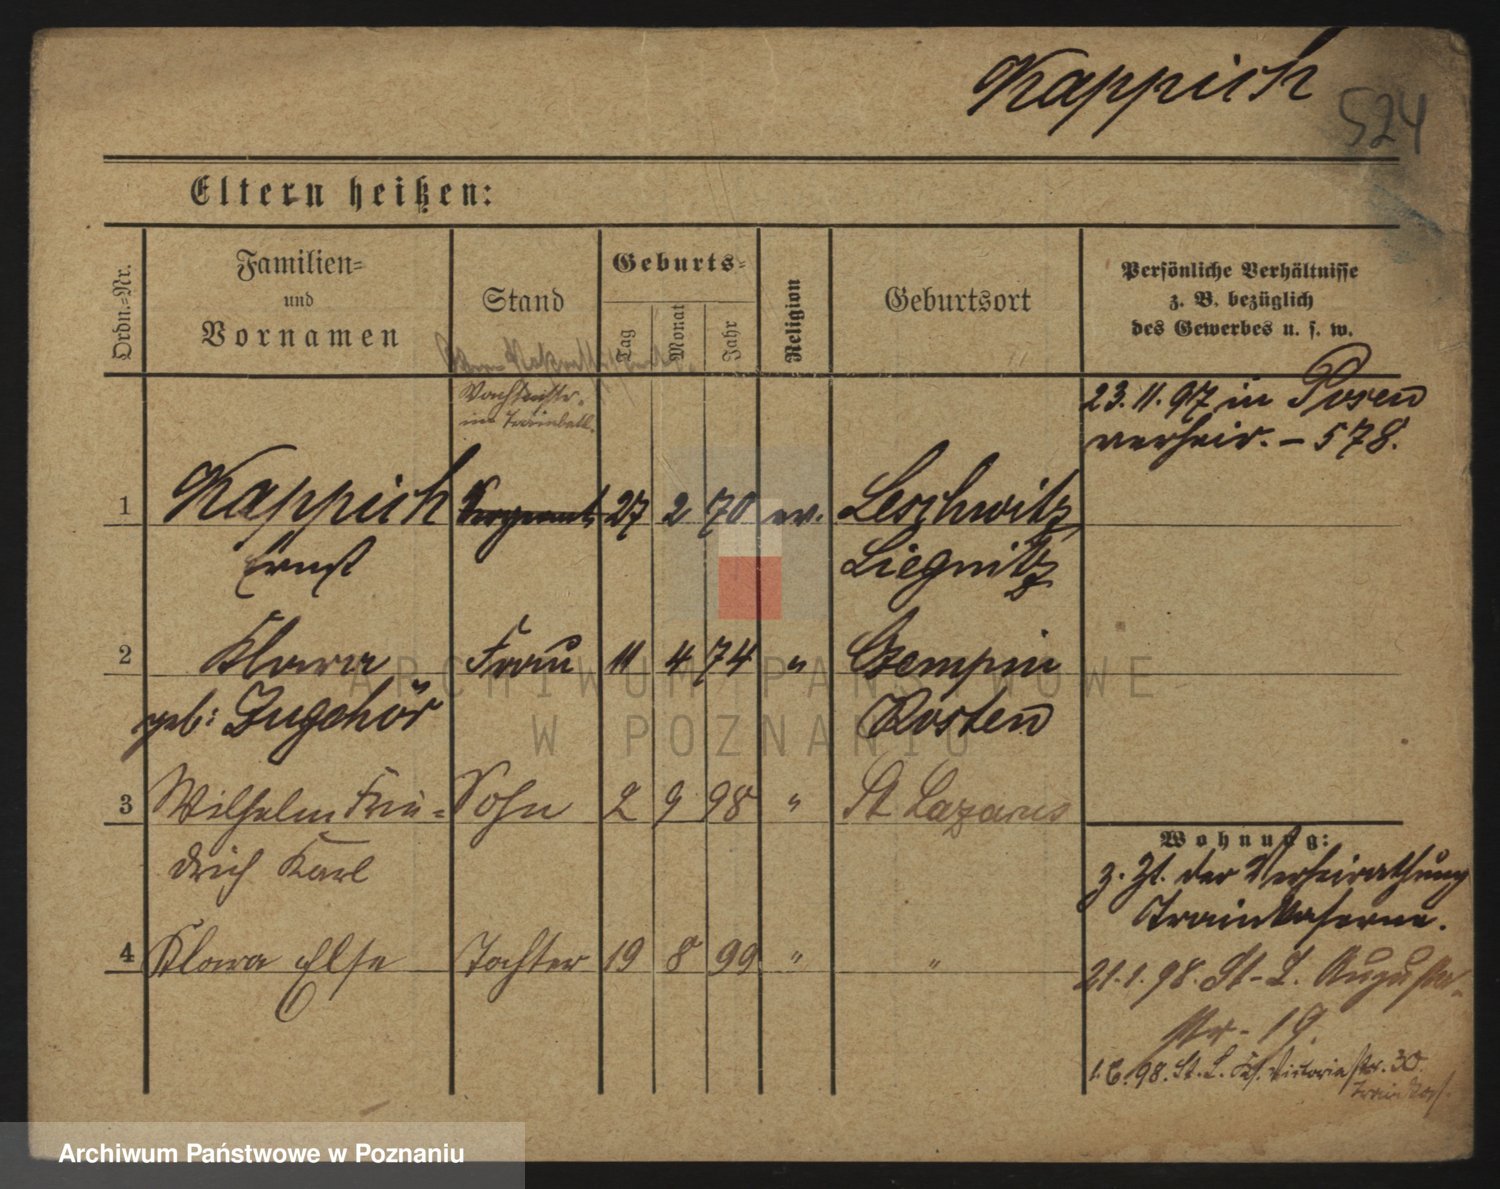 Kappich
524
Eltern heißen:
Ordn.-Nr.
Familien-
und
Vornamen
Stand
Geburts-
Tag
Monat
Jahr
Religion
Geburtsort
Persönliche Verhältnisse
z. B. bezüglich
des Gewerbes u. s. w.
Wachtmstr.
im Trainbatl.
23. 11. 97 in Posen
verheir. – 578.
1 Kappich Sergeant 27 2 70 ev. Leschwitz
Ernst Liegnitz
2 Klara Frau 11 4 74 " Czempin
geb: Zugehör Kosten
3 Wilhelm Frie- Sohn 2 9 98 " St Lazarus
drich Karl
4 Klara Else Tochter 19 8 99 " "
Wohnung:
z. Zt. der Verheirathung
Trainkaserne.
21. 1. 98. St-L. Augusta-
str - 19.
1. 6. 98. St. L. Victoria str. 30.
ARCHIWUM PAŃSTWOWE
W POZNANIU
Archiwum Państwowe w Poznaniu